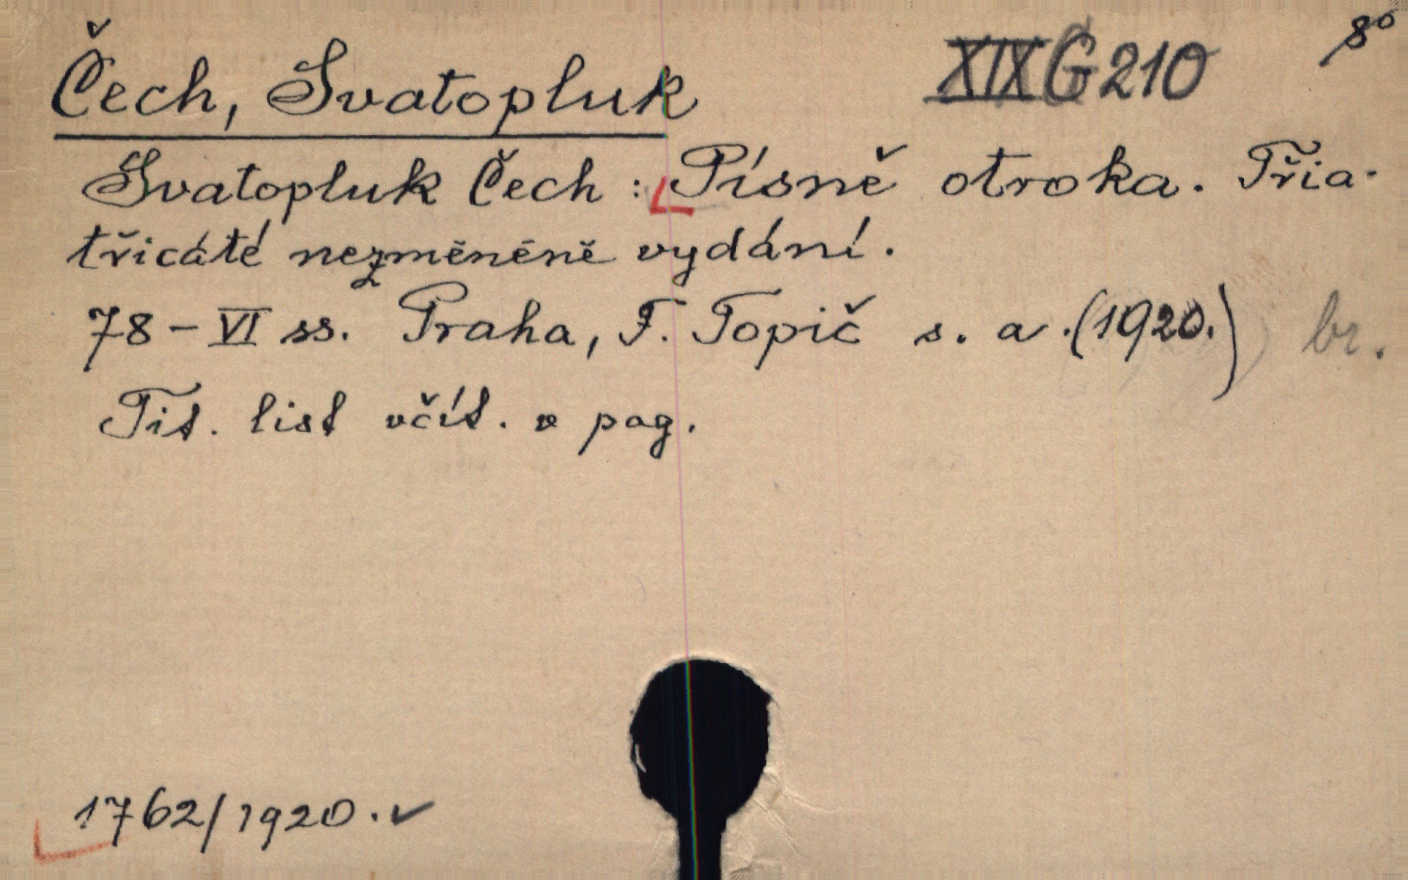 Čech, Svatopluk XIX G 210 8°
Svatopluk Čech: Písně otroka. Třia-
třicáté nezměněné vydání.
78 - VI ss. Praha, F. Topič s. a. (1920.) br.
Tit. list včít. v pag.
1762/1920. ✓